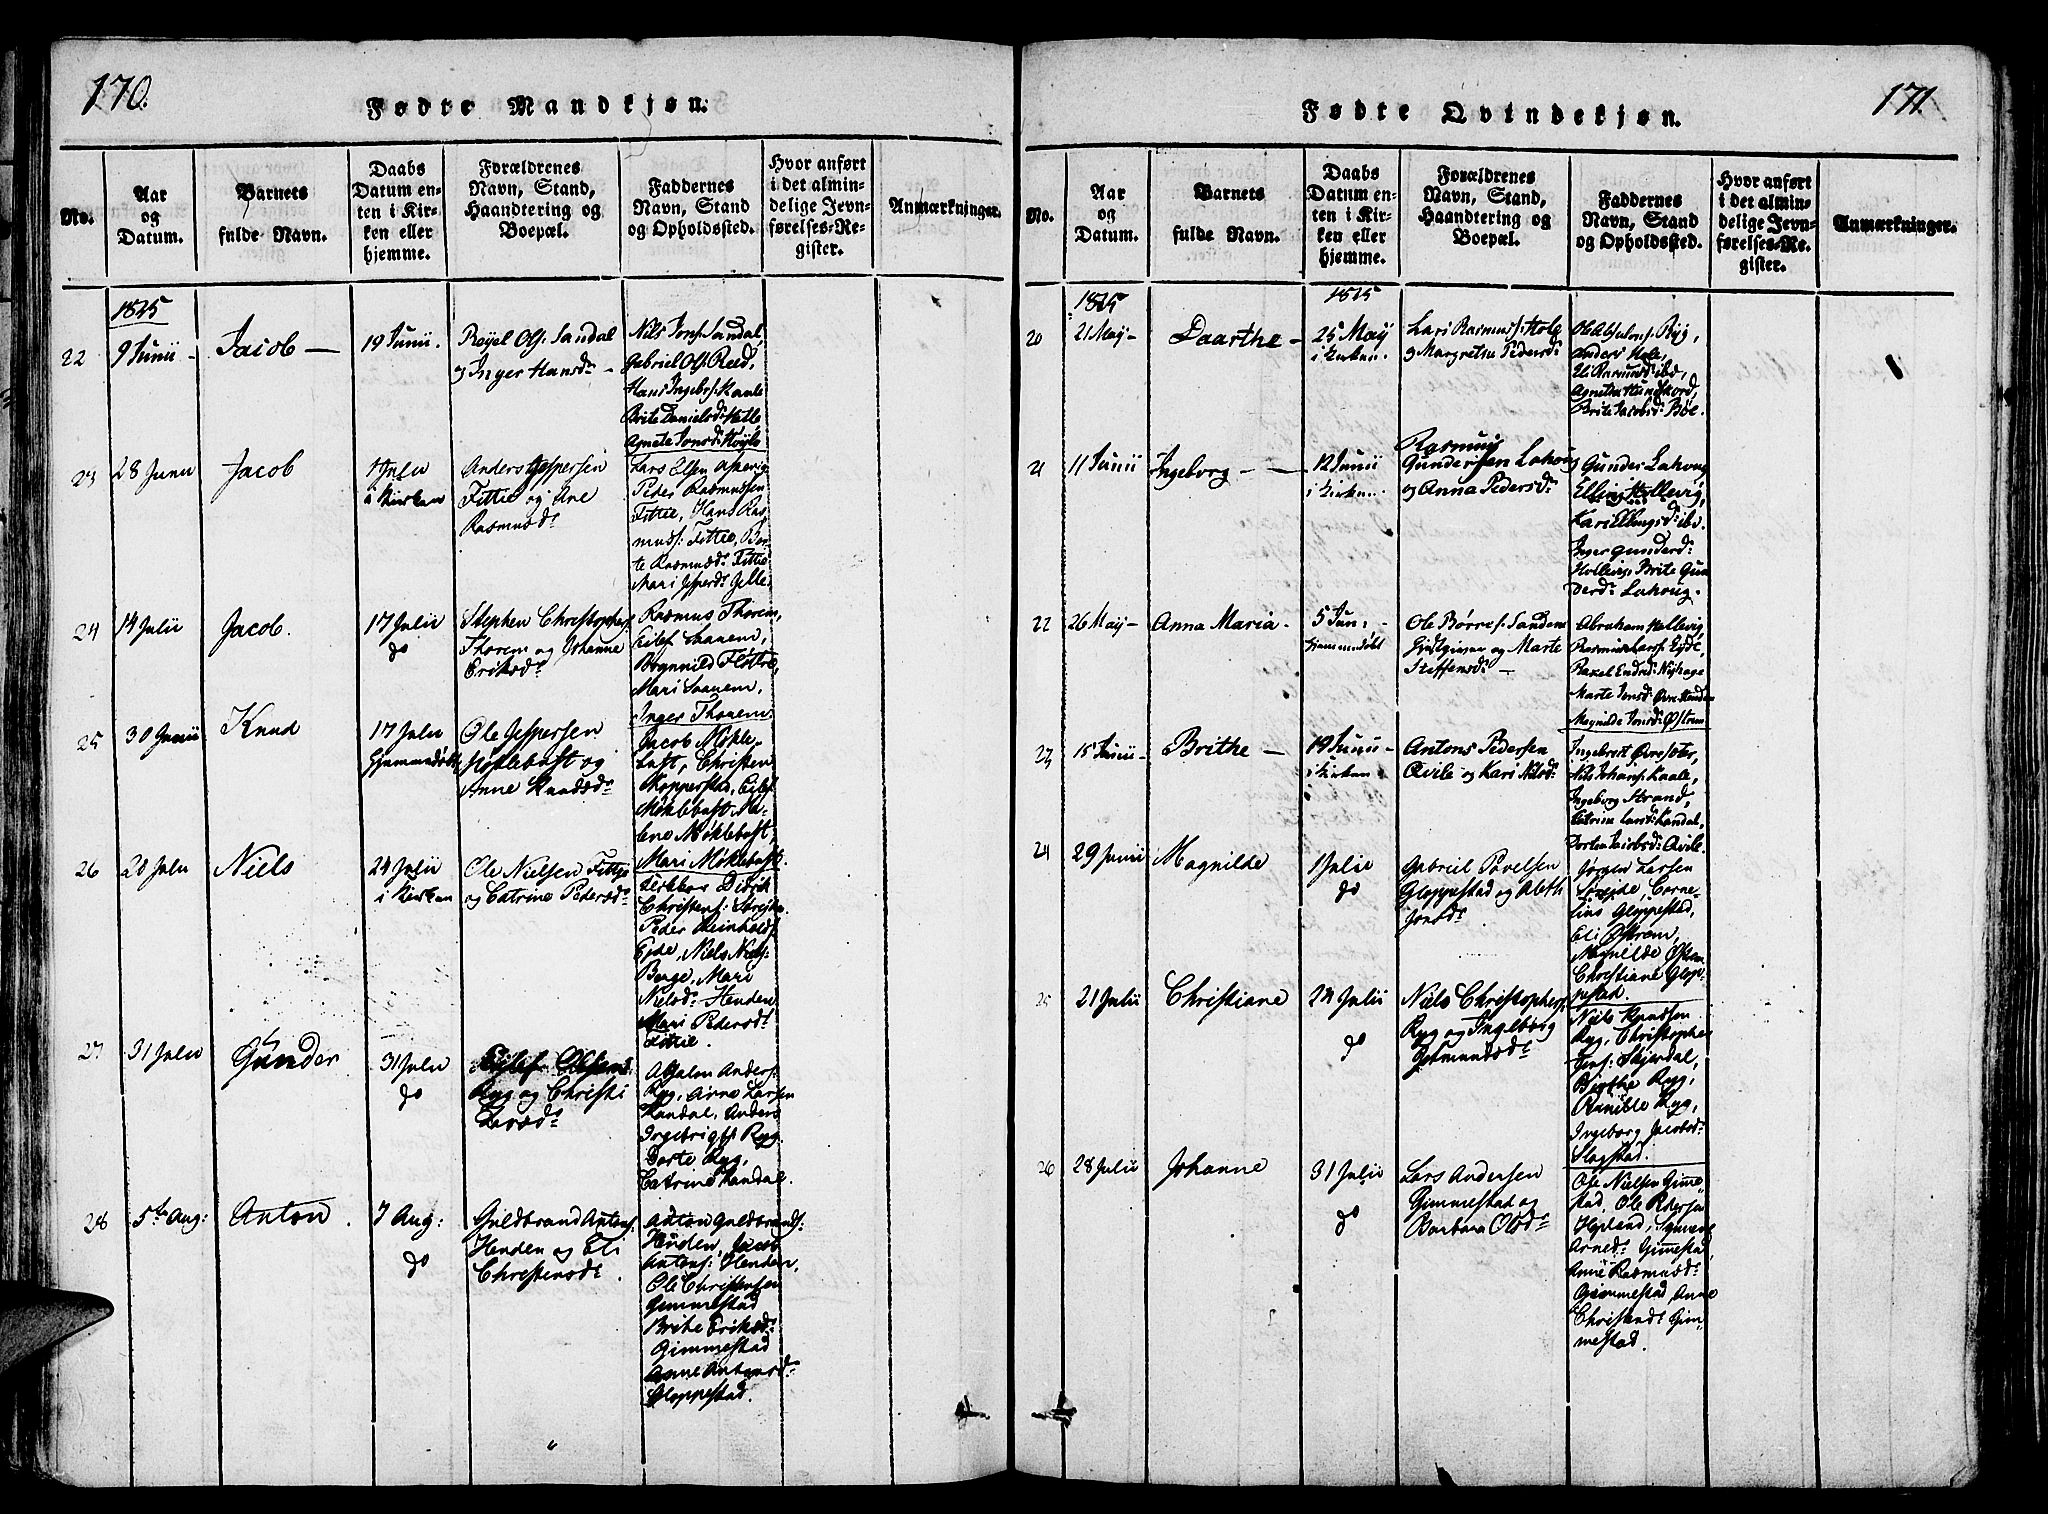 170.
Fødte Mandkjøn.
No.
Aar
og
Datum.
Barnets
fulde Navn.
Daabs
Datum en-
ten i Kir-
ken eller
hjemme.
Forældrenes
Navn, Stand,
Haandtering og
Boepæl.
Faddernes
Navn, Stand
og Opholdssted.
Hvor anført
i det almin-
delige Jevn-
førelses-Re-
gister.
Anmærkninger.
1825
22
9 Junii -
Jacob -
19 Junii.
Olss. Sandal
og Inger Hansdr -
Nils Jonss. Sandal,
Gabriel Olss. Reed,
Hans Ingebrs.
Brite Danielsdr. Hetle
Agnete Jonsdr.
23
28 Junii
Jacob
1 Julii
i Kirken
Anders Jespersen
Fittie og Ane
Rasmusdr
Lars Elsen
Peder Rasmussen
Fittie, Hans Ras-
muss: Fittie, Bri-
te Rasmusdr Fittie
Mari Jesperdr Gjelle.
24
14 Julii
Jacob.
17 Julii
do
Stephen Christophers:
Thorem og Johanne
Eriksdr
Rasmus Thorem,
Eilef Saanem,
Bognnild Fløttre,
Mari Saanem,
Inger Thorem
25
30 Junii
Knud
17 Julii
Ole Jespersen
Møklebust og
Anne Knudsdr
Jacob Møkle-
bust, Christen
Skoppersted, Eilef
Møklebust, He-
lene Møklebust,
Mari Møklebust.
26
20 Julii
Niels
24 Julii
i Kirken
Ole Nielsen Fittje
og Catrine Pedersdr
Didrik
Christens:
Peder Reinholds:
Eide, Niels Niels:
Berge, Mari
Nielsdr Henden
Mari Pedersdr
Fittie.
27
31 Julii
Gunder
31 Julii
do
Eilef Olsen
Ryg og Christi
Larsdr
Absalon Anders:
Ryg, Arne Larsen
Sandal, Anders
Ingebrigts: Ryg.
Dorte Ryg,
Catrine Sandal.
28
5te Aug:
Anton.
7 Aug:
do
Guldbrand Antons:
Henden og Eli
Christensdr.
Anton Guldbrands:
Henden, Jacob
Antons: Henden,
Ole Christensen
Gimmestad
Brite Eriksdr
Gimmestad
Anne Antonsdr
Gloppestad.
171.
Fødte Qvindekjøn.
No.
Aar
og
Datum.
Barnets
fulde Navn.
Daabs
Datum en-
ten i Kir-
ken eller
hjemme.
Forældrenes
Navn, Stand,
Haandtering og
Boepæl.
Faddernes
Navn, Stand
og Opholdssted.
Hvor anført
i det almin-
delige Jevn-
førelses-Re-
gister.
Anmærkninger.
1825
1825
20
21 May -
Daarthe -
25 May
i Kirken.
Lars Rasmuss: Hole
og Margrethe Pedersdr
Ole Absalons: Ryg,
Anders Hole,
Eli Rasmusdr ibd,
Agnethe Hundskord,
Brite Jacobsdr: Bøe.
21
11 Junii
Ingeborg - -
12 Junii
i Kirken.
Rasmus
Gundersen Lahoug
og Anna Pedersdr
Gunder Lahoug,
Elling Hollevig,
Kari Ellingsdr: ibd.
Inger Gunderdr:
Hollevig, Brite Gun-
dersdr Lahoug.
22
26 May -
Anna Maria -
5 Jun: -
Ole Børres: Sandene
Gjestgiver og Marte
Steffensdr -
Abraham Hollevig,
Rasmus Larss. Eyde,
Marte Jonsdr:
Magnilde Jonsdr: Østrem
23
15 Junii -
Brithe -
19 Junii -
i Kirken
Antons Pedersen
Qvile og Kari Nilsdr:
Ingebret
Nils Johans:
Ingeborg Strand,
Catrine Larsdr: Sandal,
Dorthe Jacobsdr: Qvile.
24
29 Junii
Magnilde
1 Julie
do
Gabriel Povelsen
Gloppestad og Aleth
Jonsdr
Jørgen Larsen
Sørejde, Corne-
lius Gloppestad,
Eli Østrem,
Magnilde Østrem
Christiane Glop-
pestad.
25
21 Julii
Christiane
24 Julii
do
Niels Christophers:
Ryg og Ingeborg
Gudmundsdr
Niels Knudsen
Ryg, Christopher
Jens: Skjerdal,
Birthe Ryg,
Ranilde Ryg,
Ingeborg Jacobsdr:
Slagstad.
26
28 Julii
Johanne
31 Julii
do
Lars Andersen
Gimmestad og
Barbara Olsdr
Ole Nielsen Gime-
stad, Ole Pedersen
Hopland, Synneve
Arnedr: Gimestad,
Anne Rasmusdr
Gimmestad, Anne
Christensdr Gim-
mestad.